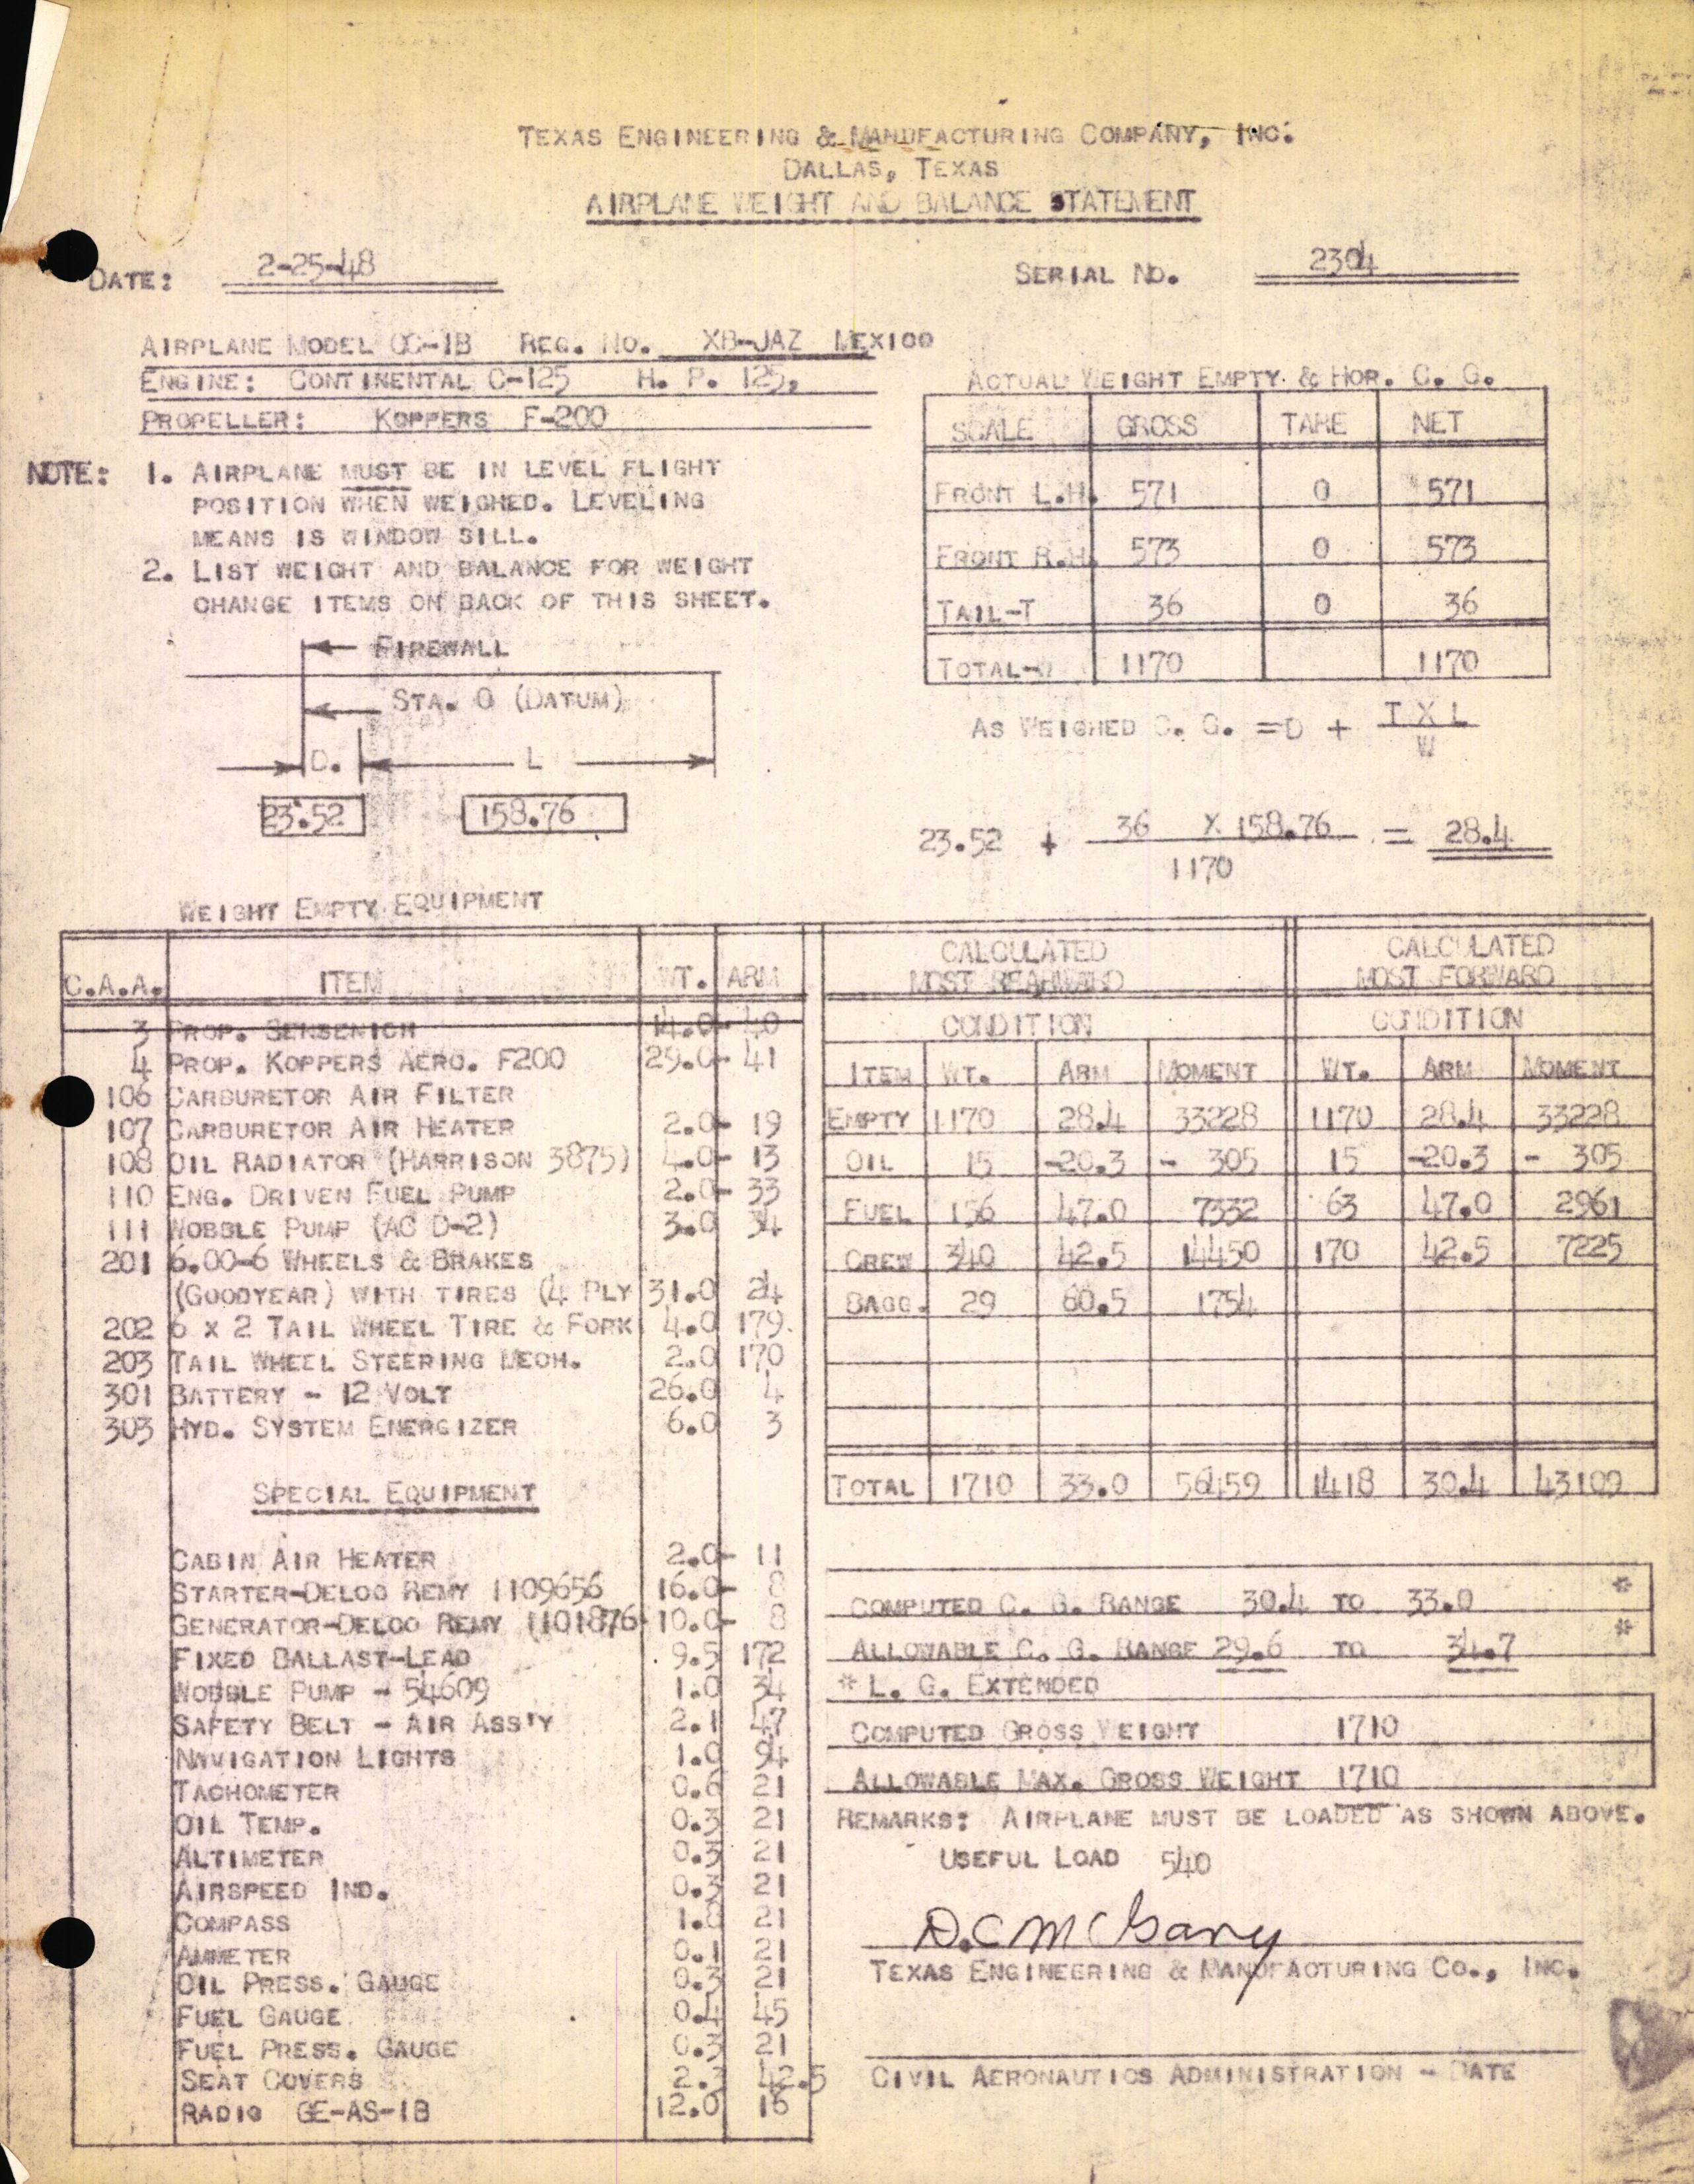 TEXAS ENGINEERING & MANUFACTURING COMPANY, INC.
DALLAS, TEXAS
AIRPLANE WEIGHT AND BALANCE STATEMENT
DATE: 2-25-48 SERIAL NO. 2304
AIRPLANE MODEL GC-1B REG. NO. XB-JAZ MEXICO
ENGINE: CONTINENTAL C-125 H. P. 125,
PROPELLER: KOPPERS F-200
NOTE: 1. AIRPLANE MUST BE IN LEVEL FLIGHT
POSITION WHEN WEIGHED. LEVELING
MEANS IS WINDOW SILL.
2. LIST WEIGHT AND BALANCE FOR WEIGHT
CHANGE ITEMS ON BACK OF THIS SHEET.
FIREWALL
STA. 0 (DATUM)
D. L
23.52 158.76
ACTUAL WEIGHT EMPTY & HOR. C. G.
SCALE GROSS TARE NET
FRONT L.H. 571 0 571
FRONT R.H. 573 0 573
TAIL-T 36 0 36
TOTAL-W 1170 1170
AS WEIGHED C. G. =D + T X L
W
23.52 + 36 X 158.76 = 28.4
1170
WEIGHT EMPTY EQUIPMENT
C.A.A. ITEM WT. ARM
3 PROP. SENSENICH 14.0 - 40
4 PROP. KOPPERS AERO. F200 29.0 - 41
106 CARBURETOR AIR FILTER
107 CARBURETOR AIR HEATER 2.0 - 19
108 OIL RADIATOR (HARRISON 3875) 4.0 - 13
110 ENG. DRIVEN FUEL PUMP 2.0 - 33
111 WOBBLE PUMP (AC D-2) 3.0 34
201 6.00-6 WHEELS & BRAKES
(GOODYEAR) WITH TIRES (4 PLY 31.0 24
202 6 X 2 TAIL WHEEL TIRE & FORK 4.0 179
203 TAIL WHEEL STEERING MECH. 2.0 170
301 BATTERY - 12 VOLT 26.0 4
303 HYD. SYSTEM ENERGIZER 6.0 3
SPECIAL EQUIPMENT
CABIN AIR HEATER 2.0 - 11
STARTER-DELCO REMY 1109656 16.0 - 8
GENERATOR-DELCO REMY 1101876 10.0 - 8
FIXED BALLAST-LEAD 9.5 172
WOBBLE PUMP - 54609 1.0 34
SAFETY BELT - AIR ASS'Y 2.1 47
NAVIGATION LIGHTS 1.0 94
TACHOMETER 0.6 21
OIL TEMP. 0.3 21
ALTIMETER 0.3 21
AIRSPEED IND. 0.3 21
COMPASS 21
AMMETER 0.1 21
OIL PRESS. GAUGE 0.3 21
FUEL GAUGE 0.4 45
FUEL PRESS. GAUGE 0.3 21
SEAT COVERS 42.5
RADIO GE-AS-1B 12.0 16
CALCULATED CALCULATED
MOST REARWARD MOST FORWARD
CONDITION CONDITION
ITEM WT. ARM MOMENT WT. ARM MOMENT
EMPTY 1170 28.4 33228 1170 28.4 33228
OIL 15 -20.3 - 305 15 -20.3 - 305
FUEL 156 47.0 7332 63 47.0 2961
CREW 340 42.5 14450 170 42.5 7225
BAGG. 29 60.5 1754
TOTAL 1710 33.0 56459 1418 30.4 43109
COMPUTED C. G. RANGE 30.4 TO 33.0 *
ALLOWABLE C. G. RANGE 29.6 TO 34.7 *
* L. G. EXTENDED
COMPUTED GROSS WEIGHT 1710
ALLOWABLE MAX. GROSS WEIGHT 1710
REMARKS: AIRPLANE MUST BE LOADED AS SHOWN ABOVE.
USEFUL LOAD 540
D.C McGary
TEXAS ENGINEERING & MANUFACTURING CO., INC.
CIVIL AERONAUTICS ADMINISTRATION - DATE